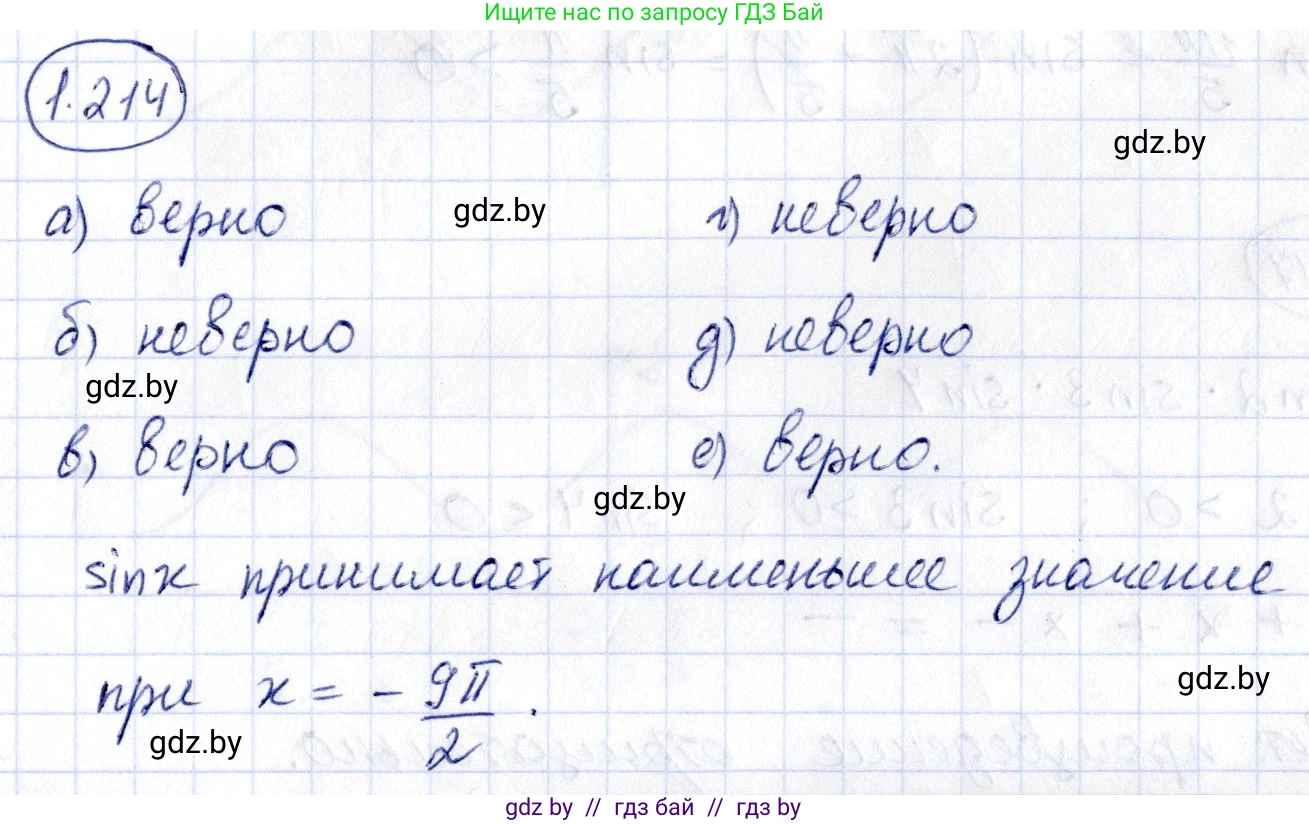 Ищите нас по запросу ГДЗ Бай
1.214
gdz.by
а) верно
gdz.by
г) неверно
б) неверно
д) неверно
gdz.by
в) верно
е) верно.
gdz.by
sinx принимает наименьшее значение
при x = - 9π/2 .
gdz.by
gdz.by
gdz.by // гдз бай // гдз by